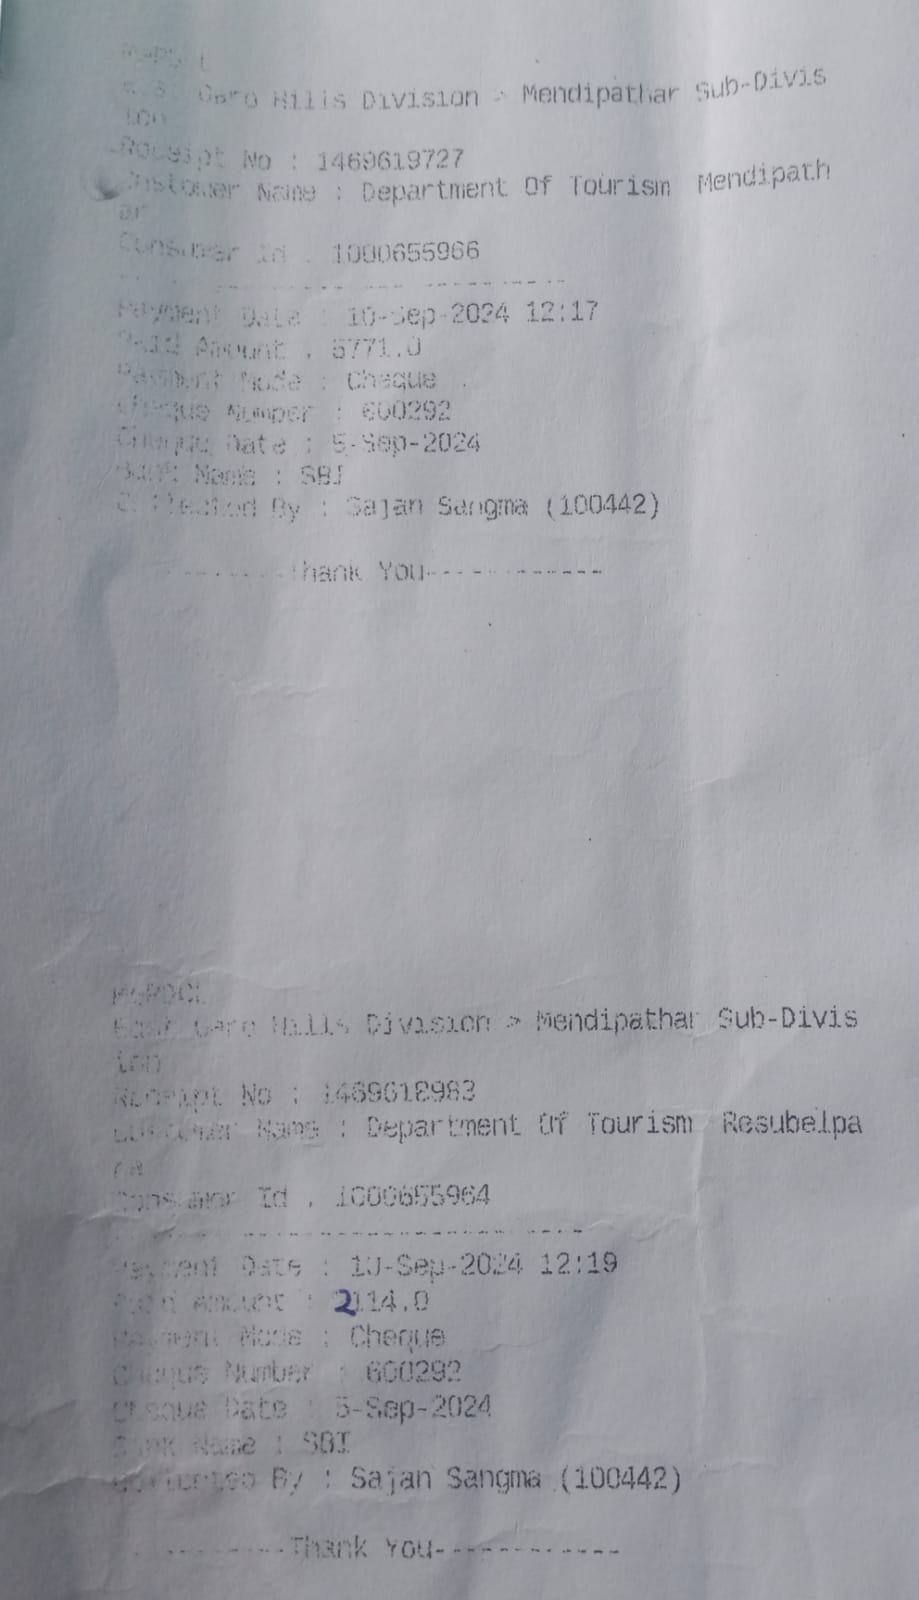 Garo Hills Division > Mendipathar Sub-Divis
ion
Receipt No : 1469619727
Customer Name : Department Of Tourism Mendipath
ar
Consumer Id : 1000655966
Payment Date : 10-Sep-2024 12:17
Paid Amount :
Payment Mode : Cheque
Cheque Number : 600292
Cheque Date : 5-Sep-2024
Bank Name : SBI
Collected By : Sajan Sangma (100442)
--------Thank You-------------
MePDCL
East Garo Hills Division > Mendipathar Sub-Divis
ion
Receipt No : 1469618983
Customer Name : Department Of Tourism Resubelpa
ra
Consumer Id : 1000655964
------------------------------
Payment Date : 10-Sep-2024 12:19
Paid Amount : 2114.0
Payment Mode : Cheque
Cheque Number : 600292
Cheque Date : 5-Sep-2024
Bank Name : SBI
Collected By : Sajan Sangma (100442)
---------Thank You-------------